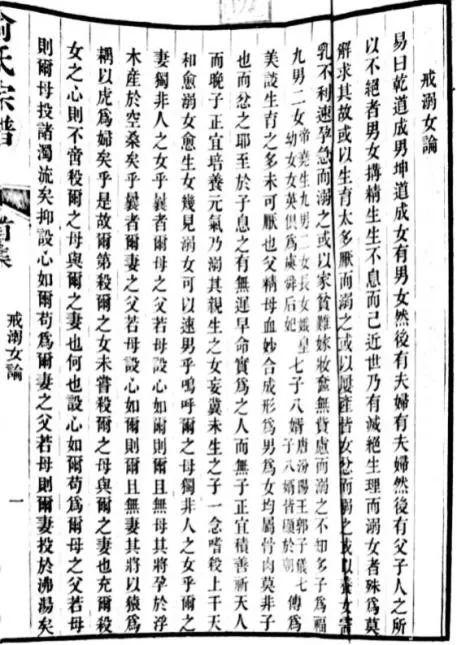 戒溺女論
易曰乾道成男坤道成女有男女然後有夫婦有夫婦然後有父子人之所
以不絕者男女搆精生生不息而已近世乃有滅絕生理而溺女者殊為莫
解求其故或以生育太多厭而溺之或以屢產皆女忿而溺之或以養女需
乳不利速孕急而溺之或以家貧難嫁妝奩無貲慮而溺之不知多子為福
九男二女帝堯生九男二女長女娥皇幼女女英俱為虞舜后妃七子八婿唐汾陽王郭子儀七子八婿皆顯於朝傳為
美談生育之多未可厭也父精母血妙合成形為男為女均屬骨肉莫非子
也而忿之耶至於子息之有無遲早命實為之人而無子正宜積善祈天人
而晚子正宜培養元氣乃溺其親生之女妄冀未生之子一念嗜殺上干天
和愈溺女愈生女幾見溺女可以速男乎嗚呼爾之母獨非人之女乎爾之
妻獨非人之女乎曩者爾母之父若母設心如爾則爾且無母其將孕於浮
木產於空桑矣乎曩者爾妻之父若母設心如爾則爾且無妻其將以猿為
耦以虎為婦矣乎是故爾第殺爾之女未嘗殺爾之母與爾之妻也充爾殺
女之心則不啻殺爾之母與爾之妻也何也設心如爾苟為爾母之父若母
則爾母投諸濁流矣抑設心如爾苟為爾妻之父若母則爾妻投於沸湯矣
俞氏宗譜
首集
戒溺女論
一